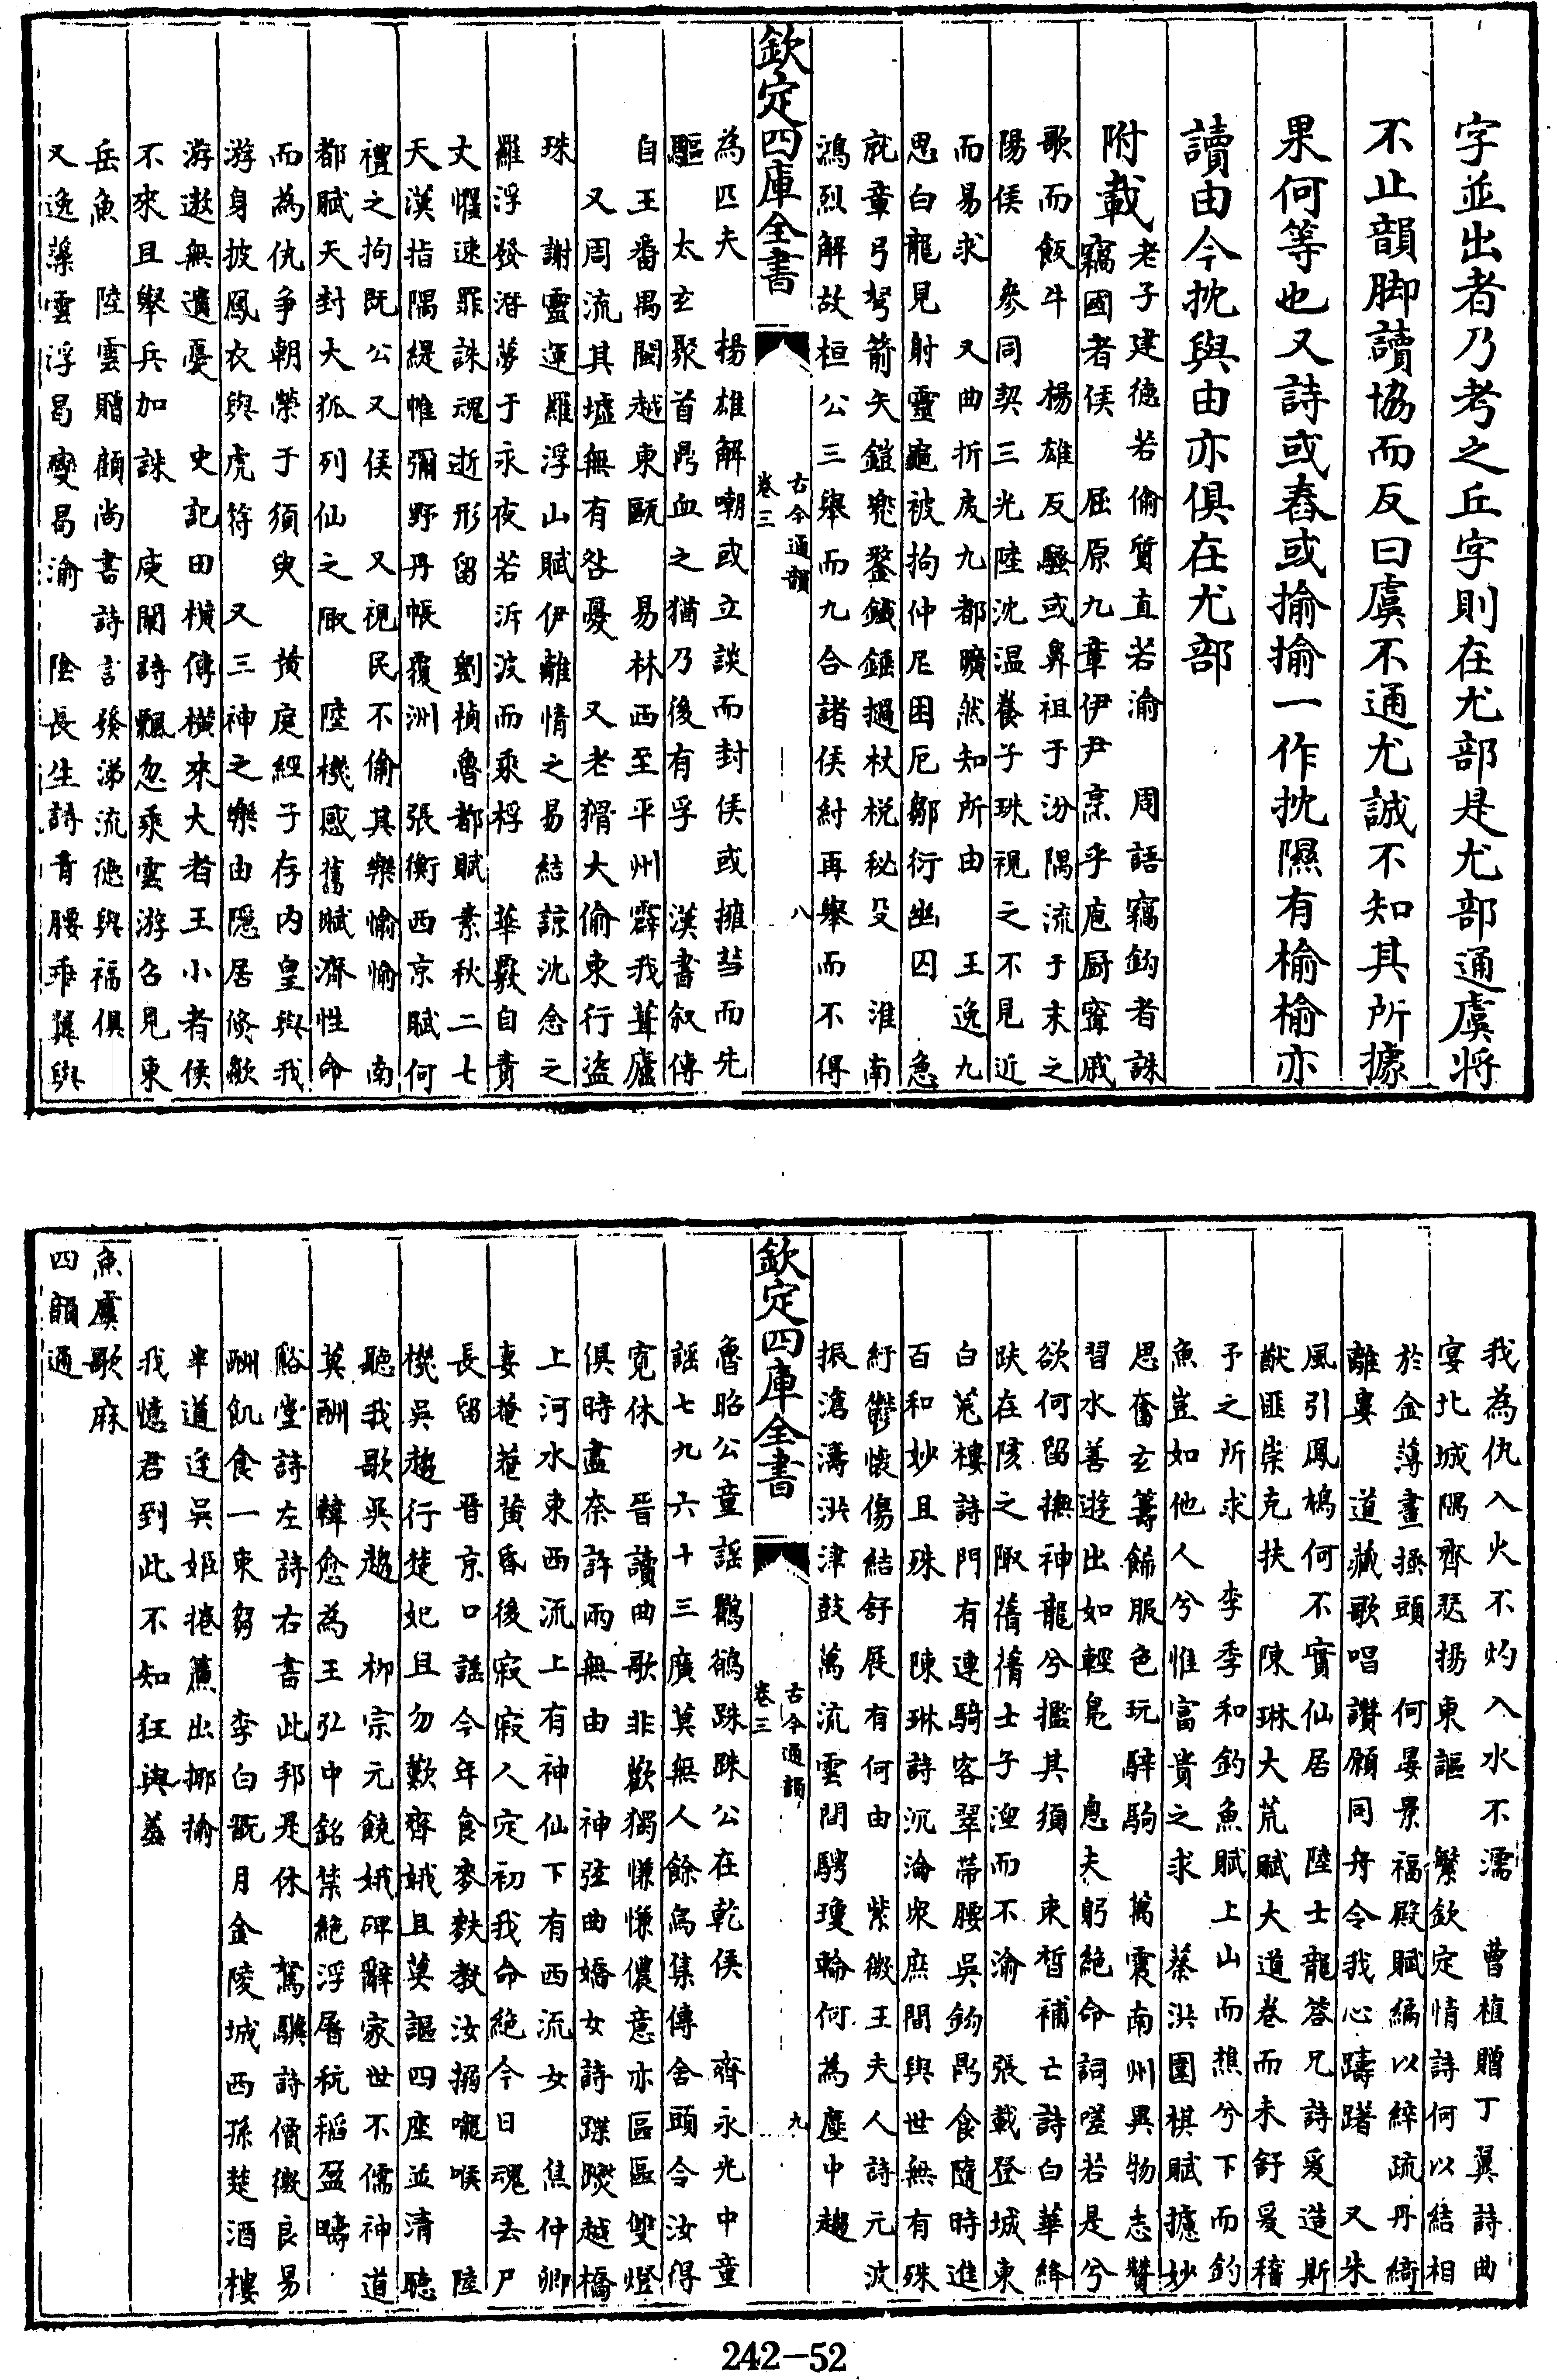 字並出者乃考之丘字則在尤部是尤部通虞將
不止韻脚讀協而反曰虞不通尤誠不知其所據
果何等也又詩或舂或揄揄一作抭隰有榆榆亦
讀由今抭與由亦俱在尤部
附載
老子建德若偷質直若渝　周語竊鈎者誅
竊國者侯　屈原九章伊尹烹乎庖厨甯戚
歌而飯牛　楊雄反騷或鼻祖于汾隅流于末之
陽侯　參同契三光陸沈温養子珠視之不見近
而易求　又曲折戾九都曠然知所由　王逸九
思白龍見射靈龜被拘仲尼困厄鄒衍幽囚　急
就章弓弩箭矢鎧兠鍪鐵錘撾杖梲柲殳　淮南
鴻烈解故桓公三舉而九合諸侯紂再舉而不得
欽定四庫全書
古今通韻
卷三
八
為匹夫　揚雄解嘲或立談而封侯或擁篲而先
驅　太玄聚首鳥血之猶乃後有孚　漢書叙傳
自王番禺閩越東甌　易林西至平州霹我葺廬
又周流其墟無有咎憂　又老猾大偷東行盜
珠　謝靈運羅浮山賦伊離情之易結諒沈念之
羅浮發潛夢于永夜若泝波而乘桴　華覈自責
丈懼速罪誅魂逝形留　劉楨魯都賦素秋二七
天漢指隅緹帷彌野丹帳覆洲　張衡西京賦何
禮之拘既公又侯　又視民不偷其樂愉愉　南
都賦天封大狐列仙之陬　陸機感舊賦濟性命
而為仇爭朝榮于須臾　黄庭經子存内皇與我
游身披鳳衣與虎符　又三神之樂由隱居倏歘
游遨無遺憂　史記田横傳横來大者王小者侯
不來且舉兵加誅　庾闡詩飄忽乘雲游召見東
岳魚　陸雲贈顧尚書詩言發涕流德與福俱
又逸藻雲浮曷變曷渝　陰長生詩青腰乖翼與
我為仇入火不灼入水不濡　曹植贈丁翼詩曲
宴北城隅齊瑟揚東謳　繁欽定情詩何以結相
於金薄畫搔頭　何晏景福殿賦編以綷疏丹綺
離婁　道藏歌唱讚願同舟令我心躊躇　又朱
風引鳳鵠何不賓仙居　陸士龍答兄詩爰造斯
猷匪崇克扶　陳琳大荒賦大道卷而未舒爰稽
予之所求　李季和釣魚賦上山而樵兮下而釣
魚豈如他人兮惟富貴之求　蔡洪圍棋賦攄妙
思奮玄籌飾服色玩騂駒　萬震南州異物志贊
習水善遊出如輕鳧　息夫躬絶命詞嗟若是兮
欲何留撫神龍兮攬其須　束晳補亡詩白華絳
趺在陔之陬蒨蒨士子湼而不渝　張載登城東
白菟樓詩門有連騎客翠帶腰吳鈎鼎食隨時進
百和妙且殊　陳琳詩沉淪衆庶間與世無有殊
紆鬱懷傷結舒展有何由　紫微王夫人詩元波
振滄濤洪津鼓萬流雲間騁瓊輪何為塵中趨
欽定四庫全書
古今通韻
卷三
九
魯昭公童謡鸜鵒跦跦公在乾侯　齊永光中童
謡七九六十三廣莫無人餘烏集傳舍頭今汝得
寛休　晋讀曲歌非歡獨慊慊儂意亦區區雙燈
俱時盡奈許兩無由　神弦曲嬌女詩蹀躞越橋
上河水東西流上有神仙下有西流女　焦仲卿
妻菴菴黄昏後寂寂人定初我命絶今日魂去尸
長留　晋京口謡今年食麥麩教汝搦嚨喉　陸
機吳趨行楚妃且勿歎齊娥且莫謳四座並清聽
聽我歌吳趨　柳宗元饒娥碑辭家世不儒神道
莫酬　韓愈為王弘中銘禁絶浮屠秔稻盈疇
谿堂詩左詩右書此邦是休　駑驥詩價微良易
酬飢食一束芻　李白翫月金陵城西孫楚酒樓
半道逢吳姬捲簾出揶揄
我憶君到此不知狂與羞
魚虞歌麻
四韻通
242—52